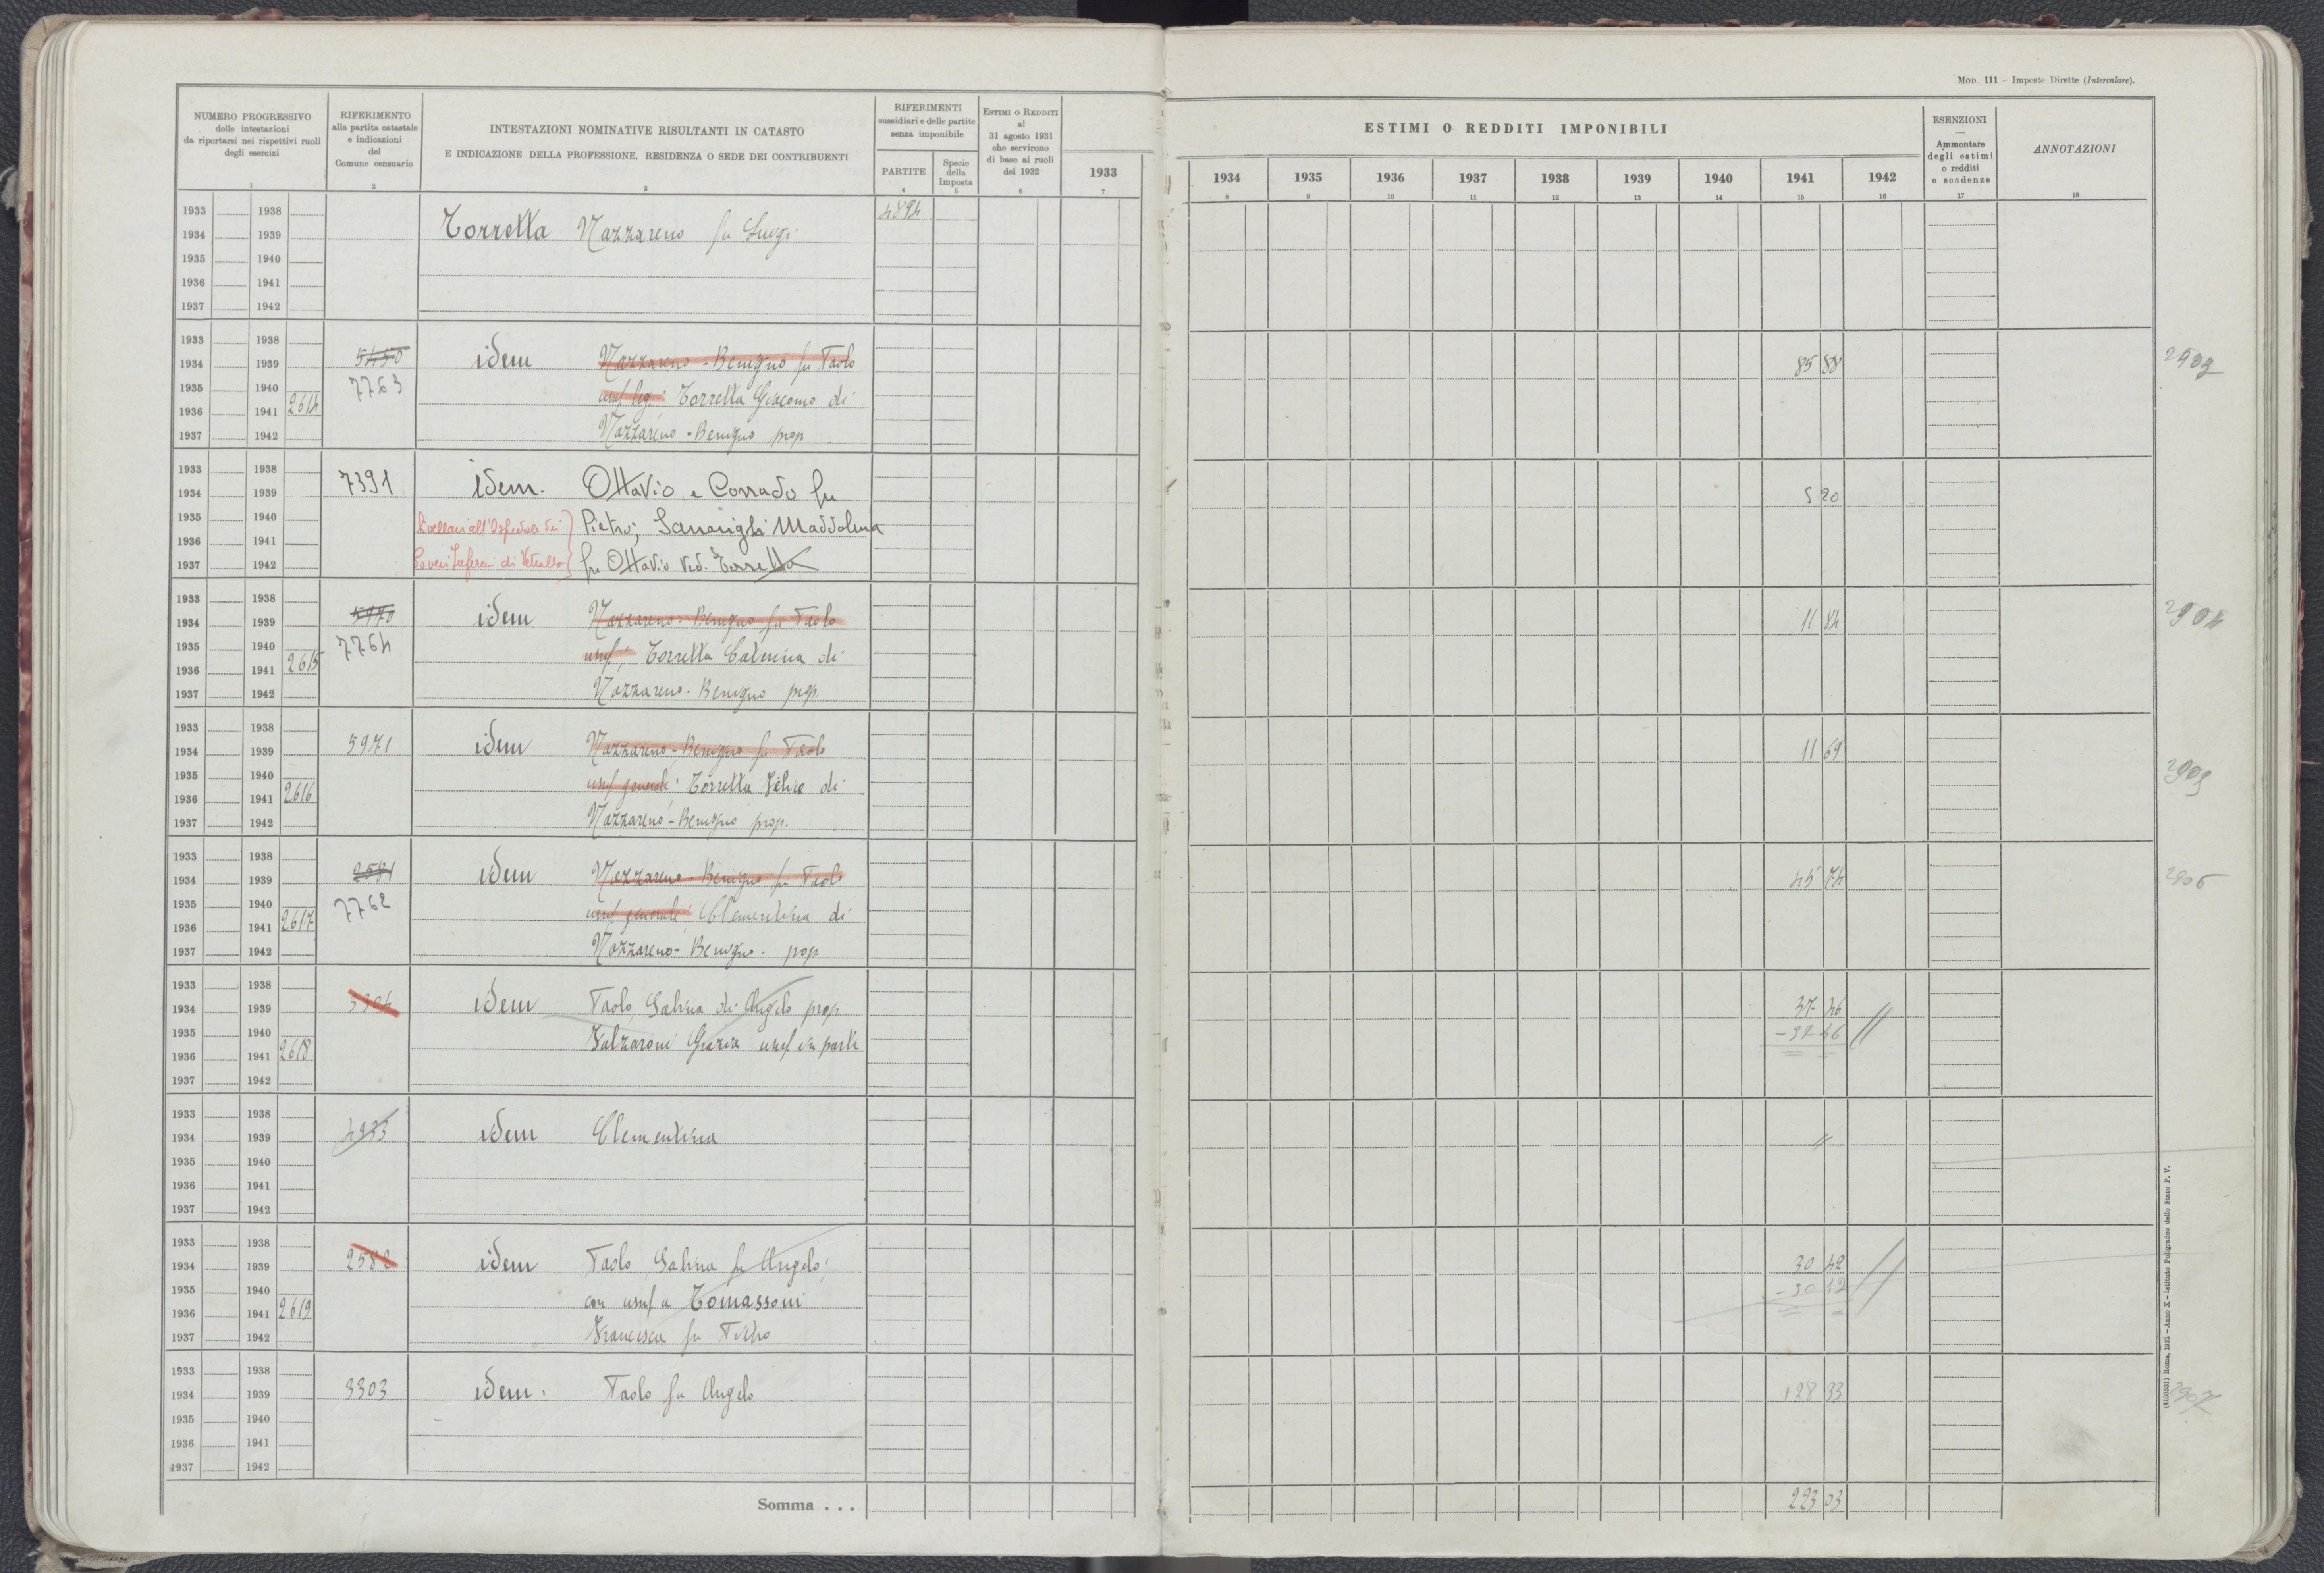 MOD. 111 - Imposte Dirette (Intercalare).
NUMERO PROGRESSIVO
delle intestazioni
da riportarsi nei rispettivi ruoli
degli esercizi
1
RIFERIMENTO
alla partita catastale
e indicazioni
del
Comune censuario
2
INTESTAZIONI NOMINATIVE RISULTANTI IN CATASTO
E INDICAZIONE DELLA PROFESSIONE, RESIDENZA O SEDE DEI CONTRIBUENTI
3
RIFERIMENTI
sussidiari e delle partite
senza imponibile
PARTITE
4
Specie
della
Imposta
5
ESTIMI O REDDITI
al
31 agosto 1931
che servirono
di base ai ruoli
del 1932
6
1933
7
ESTIMI O REDDITI IMPONIBILI
1934 1935 1936 1937 1938 1939 1940 1941 1942
8 9 10 11 12 13 14 15 16
ESENZIONI
—
Ammontare
degli estimi
o redditi
e scadenze
17
ANNOTAZIONI
18
1933 1938
1934 1939 Torretta Nazzareno fu Luigi
1935 1940
1936 1941
1937 1942
1933 1938
1934 1939 5450 idem Nazzareno-Benigno fu Paolo 85 88
1935 1940 7763
1936 1941 2614 Torretta Giacomo di
1937 1942 Nazzareno-Benigno prop
1933 1938
1934 1939 7391 idem. Ottavio e Corrado fu 5 20
1935 1940 Pietro; Maddalena
1936 1941
1937 1942 fu Ottavio Ved. Torretta
1933 1938
1934 1939 5970 idem Nazzareno-Benigno fu Paolo 11 84
1935 1940 7764
1936 1941 2615 usuf; Torretta Caterina di
1937 1942 Nazzareno-Benigno prop.
1933 1938
1934 1939 5971 idem Nazzareno-Benigno fu Paolo 11 69
1935 1940
1936 1941 2616 usuf generale; Torretta Felice di
1937 1942 Nazzareno-Benigno prop.
1933 1938
1934 1939 2581 idem Nazzareno-Benigno fu Paolo 45 74 2906
1935 1940 7762
1936 1941 2617 usuf generale; Clementina di
1937 1942 Nazzareno-Benigno. prop
1933 1938
1934 1939 idem Paolo, Sabina di Angelo prop. 37 46
1935 1940 -37 46
1936 1941 2618 Valzaroni Grazia usuf in parte
1937 1942
1933 1938
1934 1939 idem Clementina
1935 1940
1936 1941
1937 1942
1933 1938
1934 1939 2582 idem Paolo, Sabina fu Angelo; 30 42
1935 1940
1936 1941 2619 con usuf a Tomassoni
1937 1942 Francesca fu Pietro
1933 1938
1934 1939 3303 idem. Paolo fu Angelo +28 33 2907
1935 1940
1936 1941
1937 1942
Somma . . . 223 03
(4103331) Roma, 1931 - Anno X - Istituto Poligrafico dello Stato P. V.